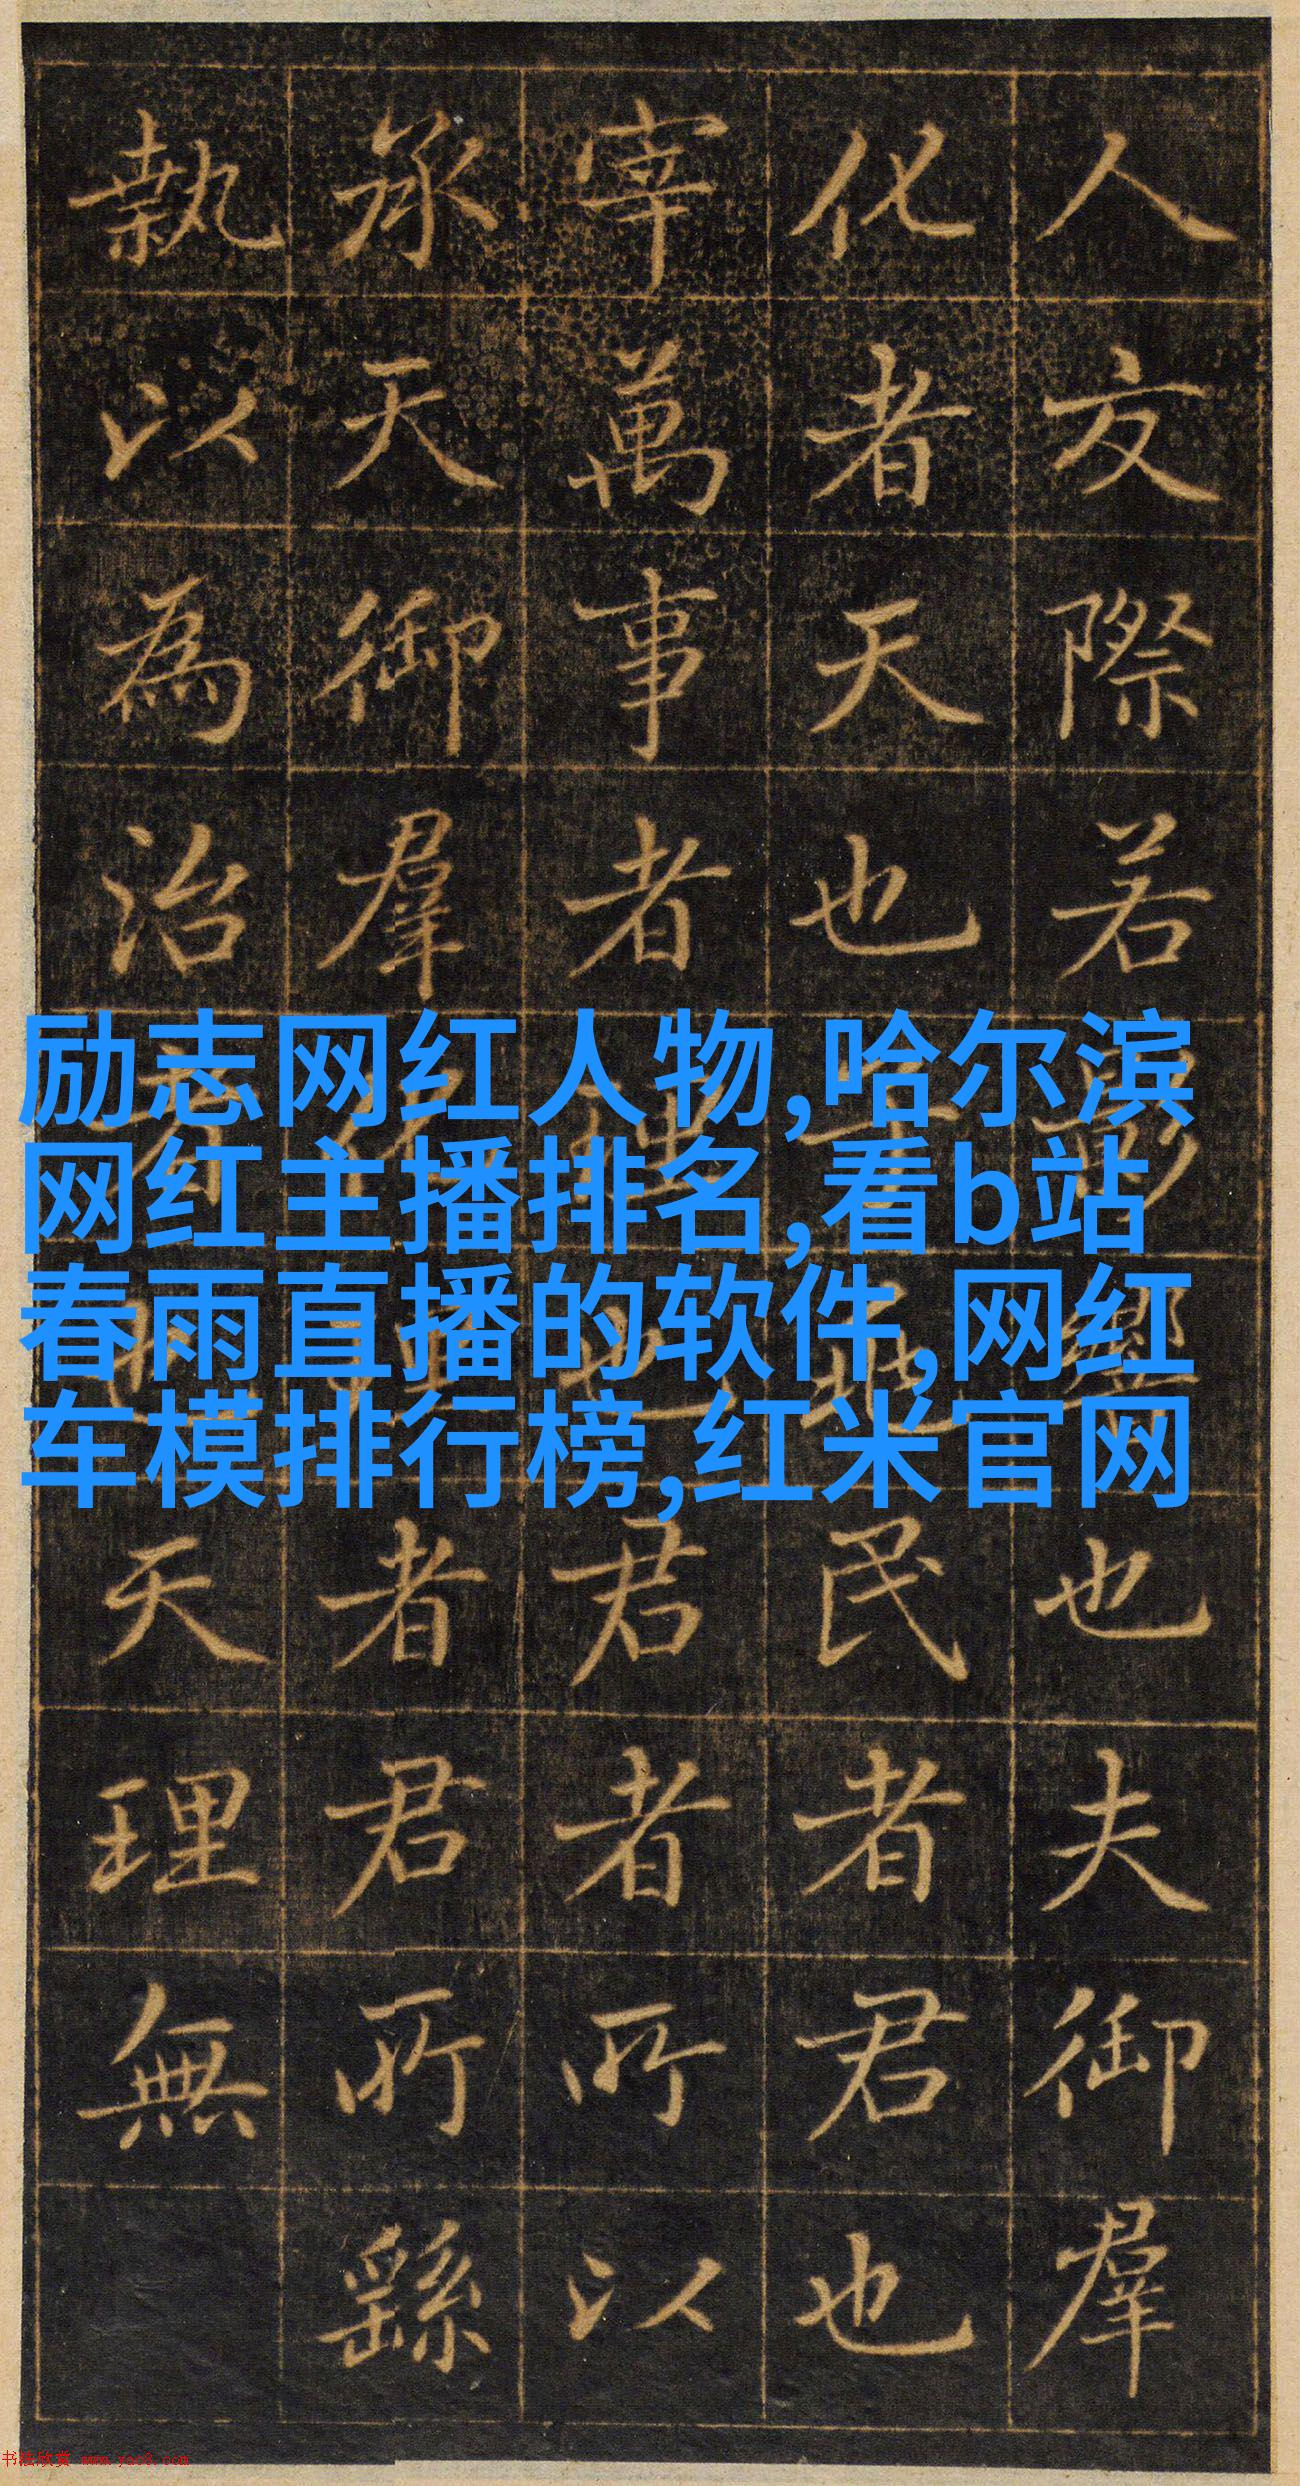 人交際若影響也夫御羣
化者天也民者君也
宰萬事者理也君者所以
承天御羣者君所繇
執以為治者也天理無
励志网红人物,哈尔滨
网红主播排名,看b站
春雨直播的软件,网红
车模排行榜,红米官网
书法欣赏 www.yac8.com